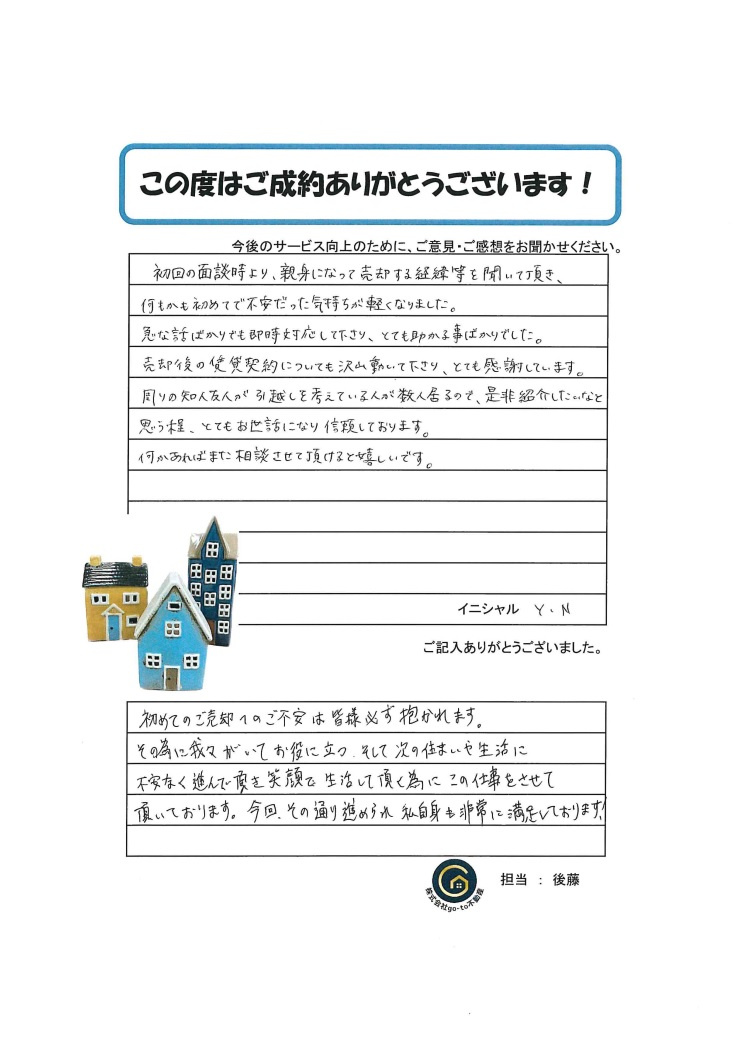 この度はご成約ありがとうございます！
今後のサービス向上のために、ご意見・ご感想をお聞かせください。
初回の面談時より、親身になって売却する経緯等を聞いて頂き、
何もかも初めてで不安だった気持ちが軽くなりました。
急な話ばかりでも即時対応して下さり、とても助かる事ばかりでした。
売却後の賃貸契約についても沢山動いて下さり、とても感謝しています。
周りの知人友人が引越しを考えている人が数人居るので、是非紹介したいなと
思う程、とてもお世話になり信頼しております。
何かあればまた相談させて頂けると嬉しいです。
イニシャル Y.N
ご記入ありがとうございました。
初めてのご売却へのご不安は皆様必ず抱かれます。
その為に我々がいてお役に立つ、そして次の住まいや生活に
不安なく進んで頂き笑顔で生活して頂く為にこの仕事をさせて
頂いております。今回、その通り進められ私自身も非常に満足しております!
株式会社go-to不動産
担当 : 後藤